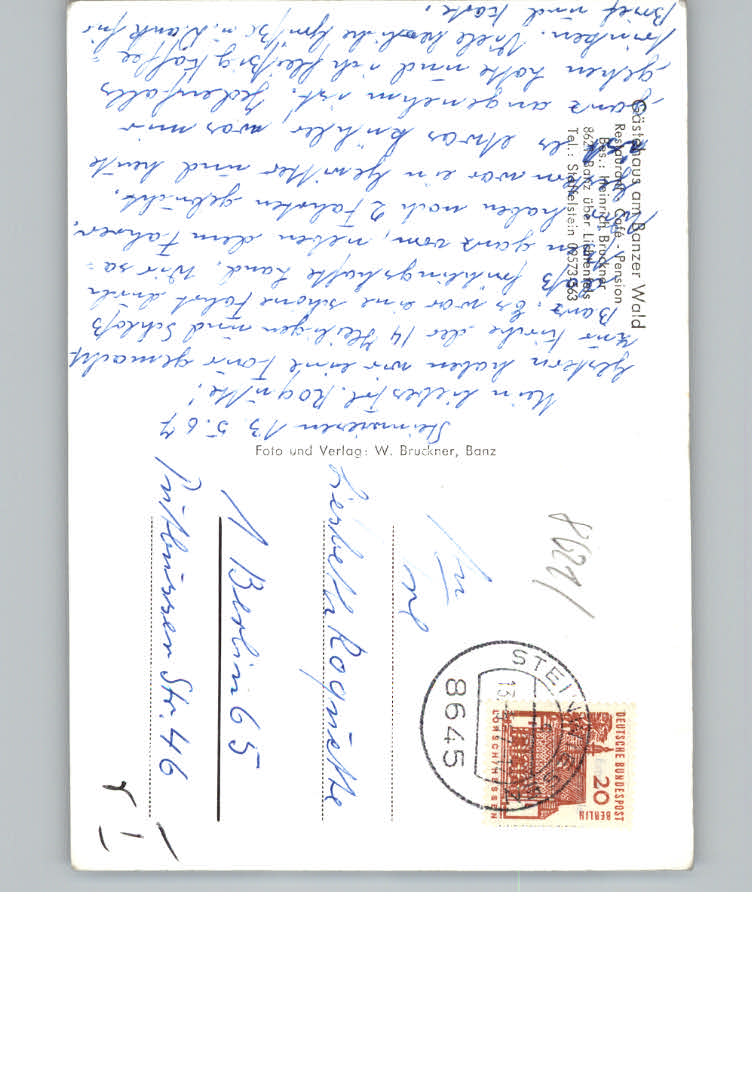 Gästehaus am Banzer Wald
Restaurant - Café - Pension
Bes.: Heinrich Bruckner
8621 Banz über Lichtenfels
Tel.: Staffelstein 09573/563
Steinwiesen 13.5.67
Mein liebes Frl. Roquette!
Gestern haben wir eine Tour gemacht
zur Kirche der 14 Heiligen und Schloß
Banz. Es war eine schöne Fahrt durch
das frühlingshafte Land. Wir sa=
ßen ganz vorn, neben dem Fahrer.
Wir haben noch 2 Fahrten gebucht.
Gestern war ein Gewitter und heute
ist es etwas kühler was mir
ganz angenehm ist. Jedenfalls
gehen Lotte und ich fleißig Kaffee=
trinken. Viele herzliche Grüße u. Dank für
Brief und Karte.
Foto und Verlag: W. Bruckner, Banz
8621/
Frl.
Lisbeth Roquette
1 Berlin 65
Putbusser Str. 46
STEINWIESEN
13.
8645
DEUTSCHE BUNDESPOST
BERLIN
20
LORSCH/HESSEN